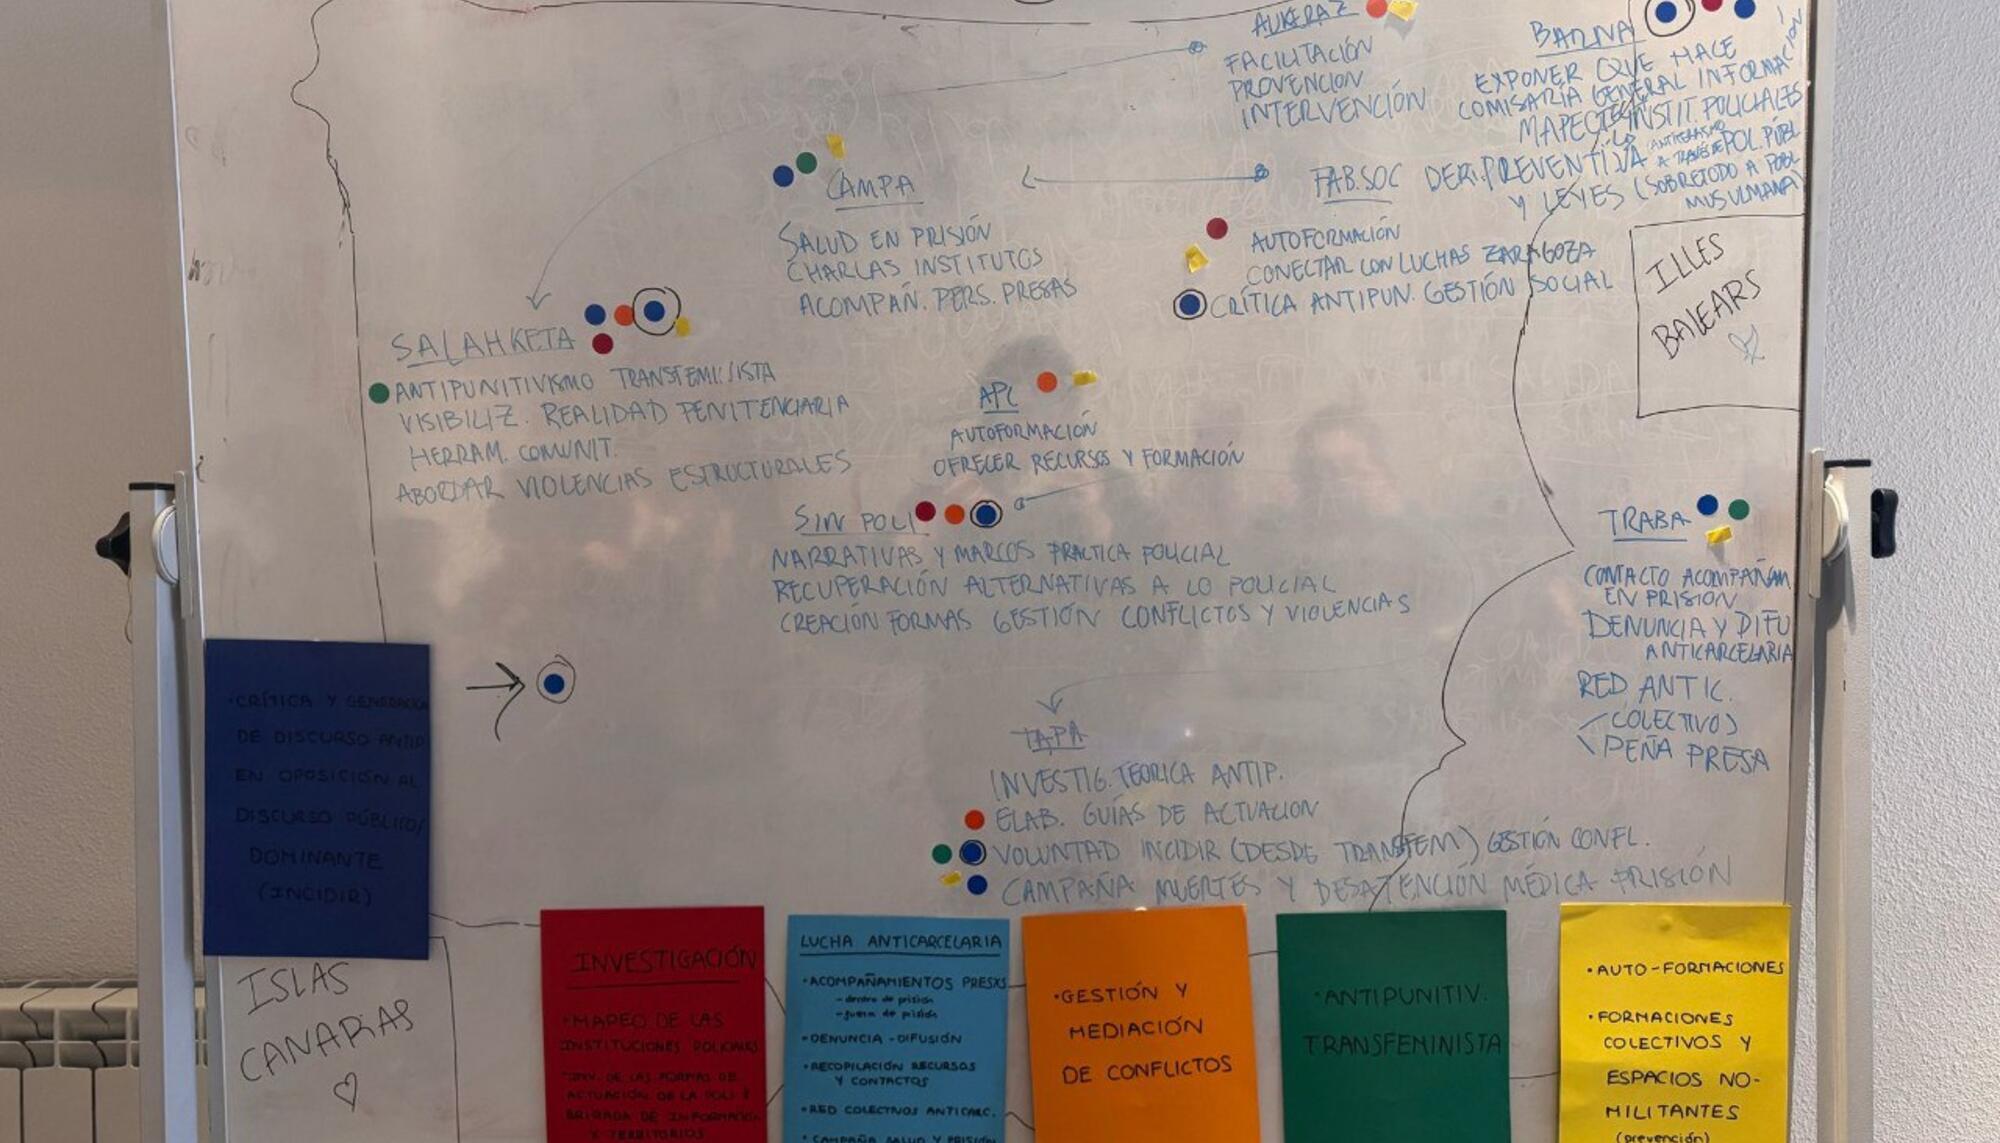 AUKERAZ
FACILITACIÓN
PROVENCION
INTERVENCIÓN
BARNA
EXPONER QUE HACE
COMISARÍA GENERAL INFORMACIÓN
MAPEO INSTIT. POLICIALES
DER. PREVENTIVA A TRAVÉS DE POL. PÚBL
Y LEYES (SOBRETODO A POBL
MUSULMANA)
CAMPA
SALUD EN PRISIÓN
CHARLAS INSTITUTOS
ACOMPAÑ. PERS. PRESAS
FAB.SOC
AUTOFORMACIÓN
CONECTAR CON LUCHAS ZARAGOZA
CRÍTICA ANTIPUN. GESTIÓN SOCIAL
ILLES
BALEARS
SALAHKETA
ANTIPUNITIVISMO TRANSFEMINISTA
VISIBILIZ. REALIDAD PENITENCIARIA
HERRAM. COMUNIT.
ABORDAR VIOLENCIAS ESTRUCTURALES
APL
AUTOFORMACIÓN
OFRECER RECURSOS Y FORMACIÓN
SIN POLI
NARRATIVAS Y MARCOS PRACTICA POLICIAL
RECUPERACIÓN ALTERNATIVAS A LO POLICIAL
CREACIÓN FORMAS GESTIÓN CONFLICTOS Y VIOLENCIAS
TRABA
CONTACTO ACOMPAÑAM
EN PRISION
DENUNCIA Y DIFU
ANTICARCELARIA
RED ANTIC.
COLECTIVOS
PEÑA PRESA
TAPA
INVESTIG. TEORICA ANTIP.
ELAB. GUÍAS DE ACTUACION
VOLUNTAD INCIDIR (DESDE TRANSFEM) GESTIÓN CONFL.
CAMPAÑA MUERTES Y DESATENCIÓN MÉDICA PRISIÓN
• CRÍTICA Y GENERACIÓN
DE DISCURSO ANTIP
EN OPOSICIÓN AL
DISCURSO PÚBLICO/
DOMINANTE
(INCIDIR)
ISLAS
CANARIAS
INVESTIGACIÓN
• MAPEO DE LAS
INSTITUCIONES POLICIALES
• INV. DE LAS FORMAS DE
ACTUACIÓN DE LA POLI Y
BRIGADA DE INFORMACIÓN
X TERRITORIOS
LUCHA ANTICARCELARIA
• ACOMPAÑAMIENTOS PRESXS
- dentro de prisión
- fuera de prisión
• DENUNCIA - DIFUSIÓN
• RECOPILACIÓN RECURSOS
Y CONTACTOS
• RED COLECTIVOS ANTICARC.
• CAMPAÑA SALUD Y PRISIÓN
• GESTIÓN Y
MEDIACIÓN
DE CONFLICTOS
• ANTIPUNITIV.
TRANSFEMINISTA
• AUTO-FORMACIONES
• FORMACIONES
COLECTIVOS Y
ESPACIOS NO-
MILITANTES
(prevención)